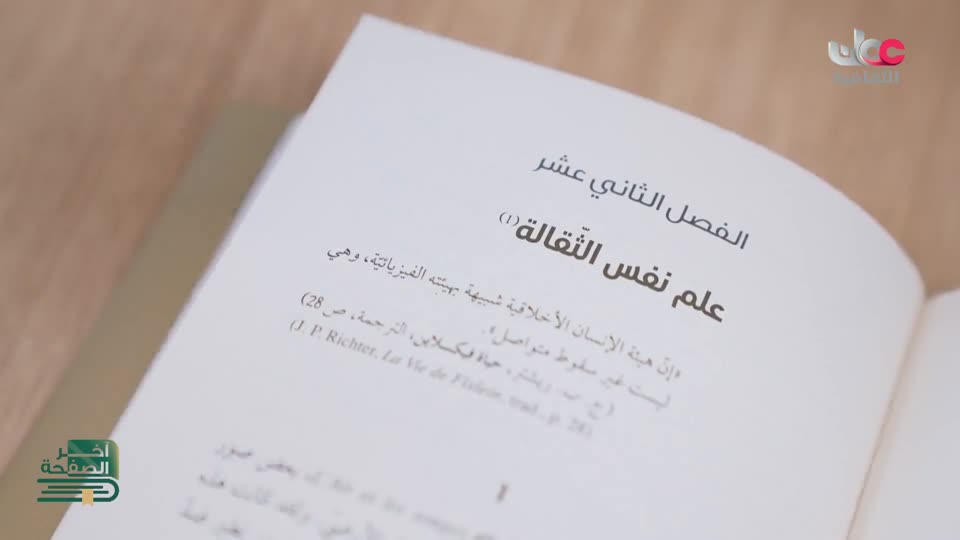 عمان
الثقافية
الفصل الثاني عشر
علم نفس الثّقالة (1)
«إنّ هيئة الإنسان الأخلاقية شبيهة بهيئته الفيزيائيّة، وهي
ليست غير سقوط متواصل».
(ج. ب. ريشتر، حياة فيكسلاين، الترجمة، ص 28)
(J. P. Richter, La Vie de Fixlein, trad., p. 28)
I
بعض صور
آخر
الصفحة